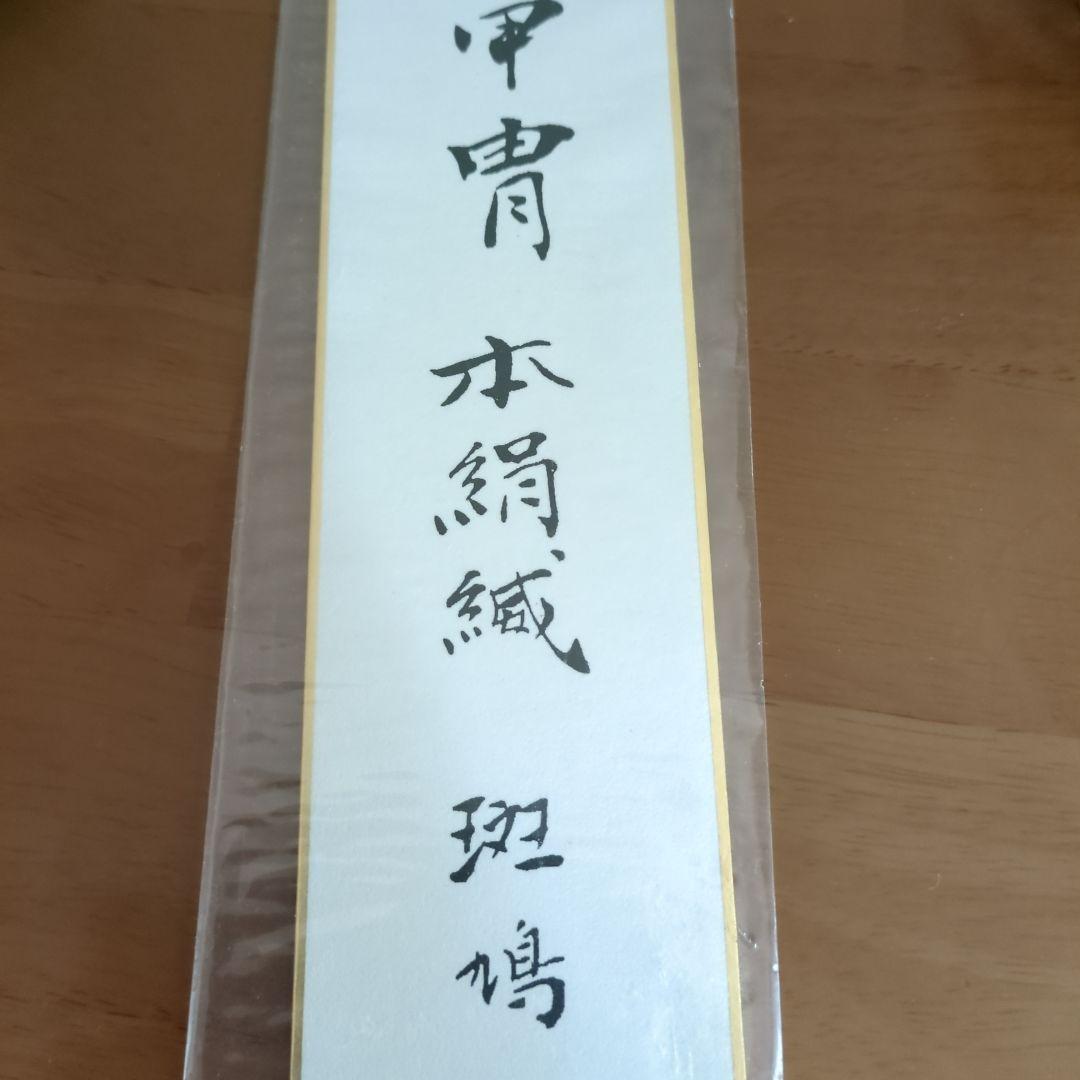 甲冑 本絹縅 斑鳩